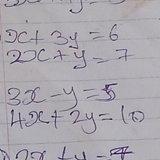 x + 3y = 6
2x + y = 7
3x - y = 5
4x + 2y = 10